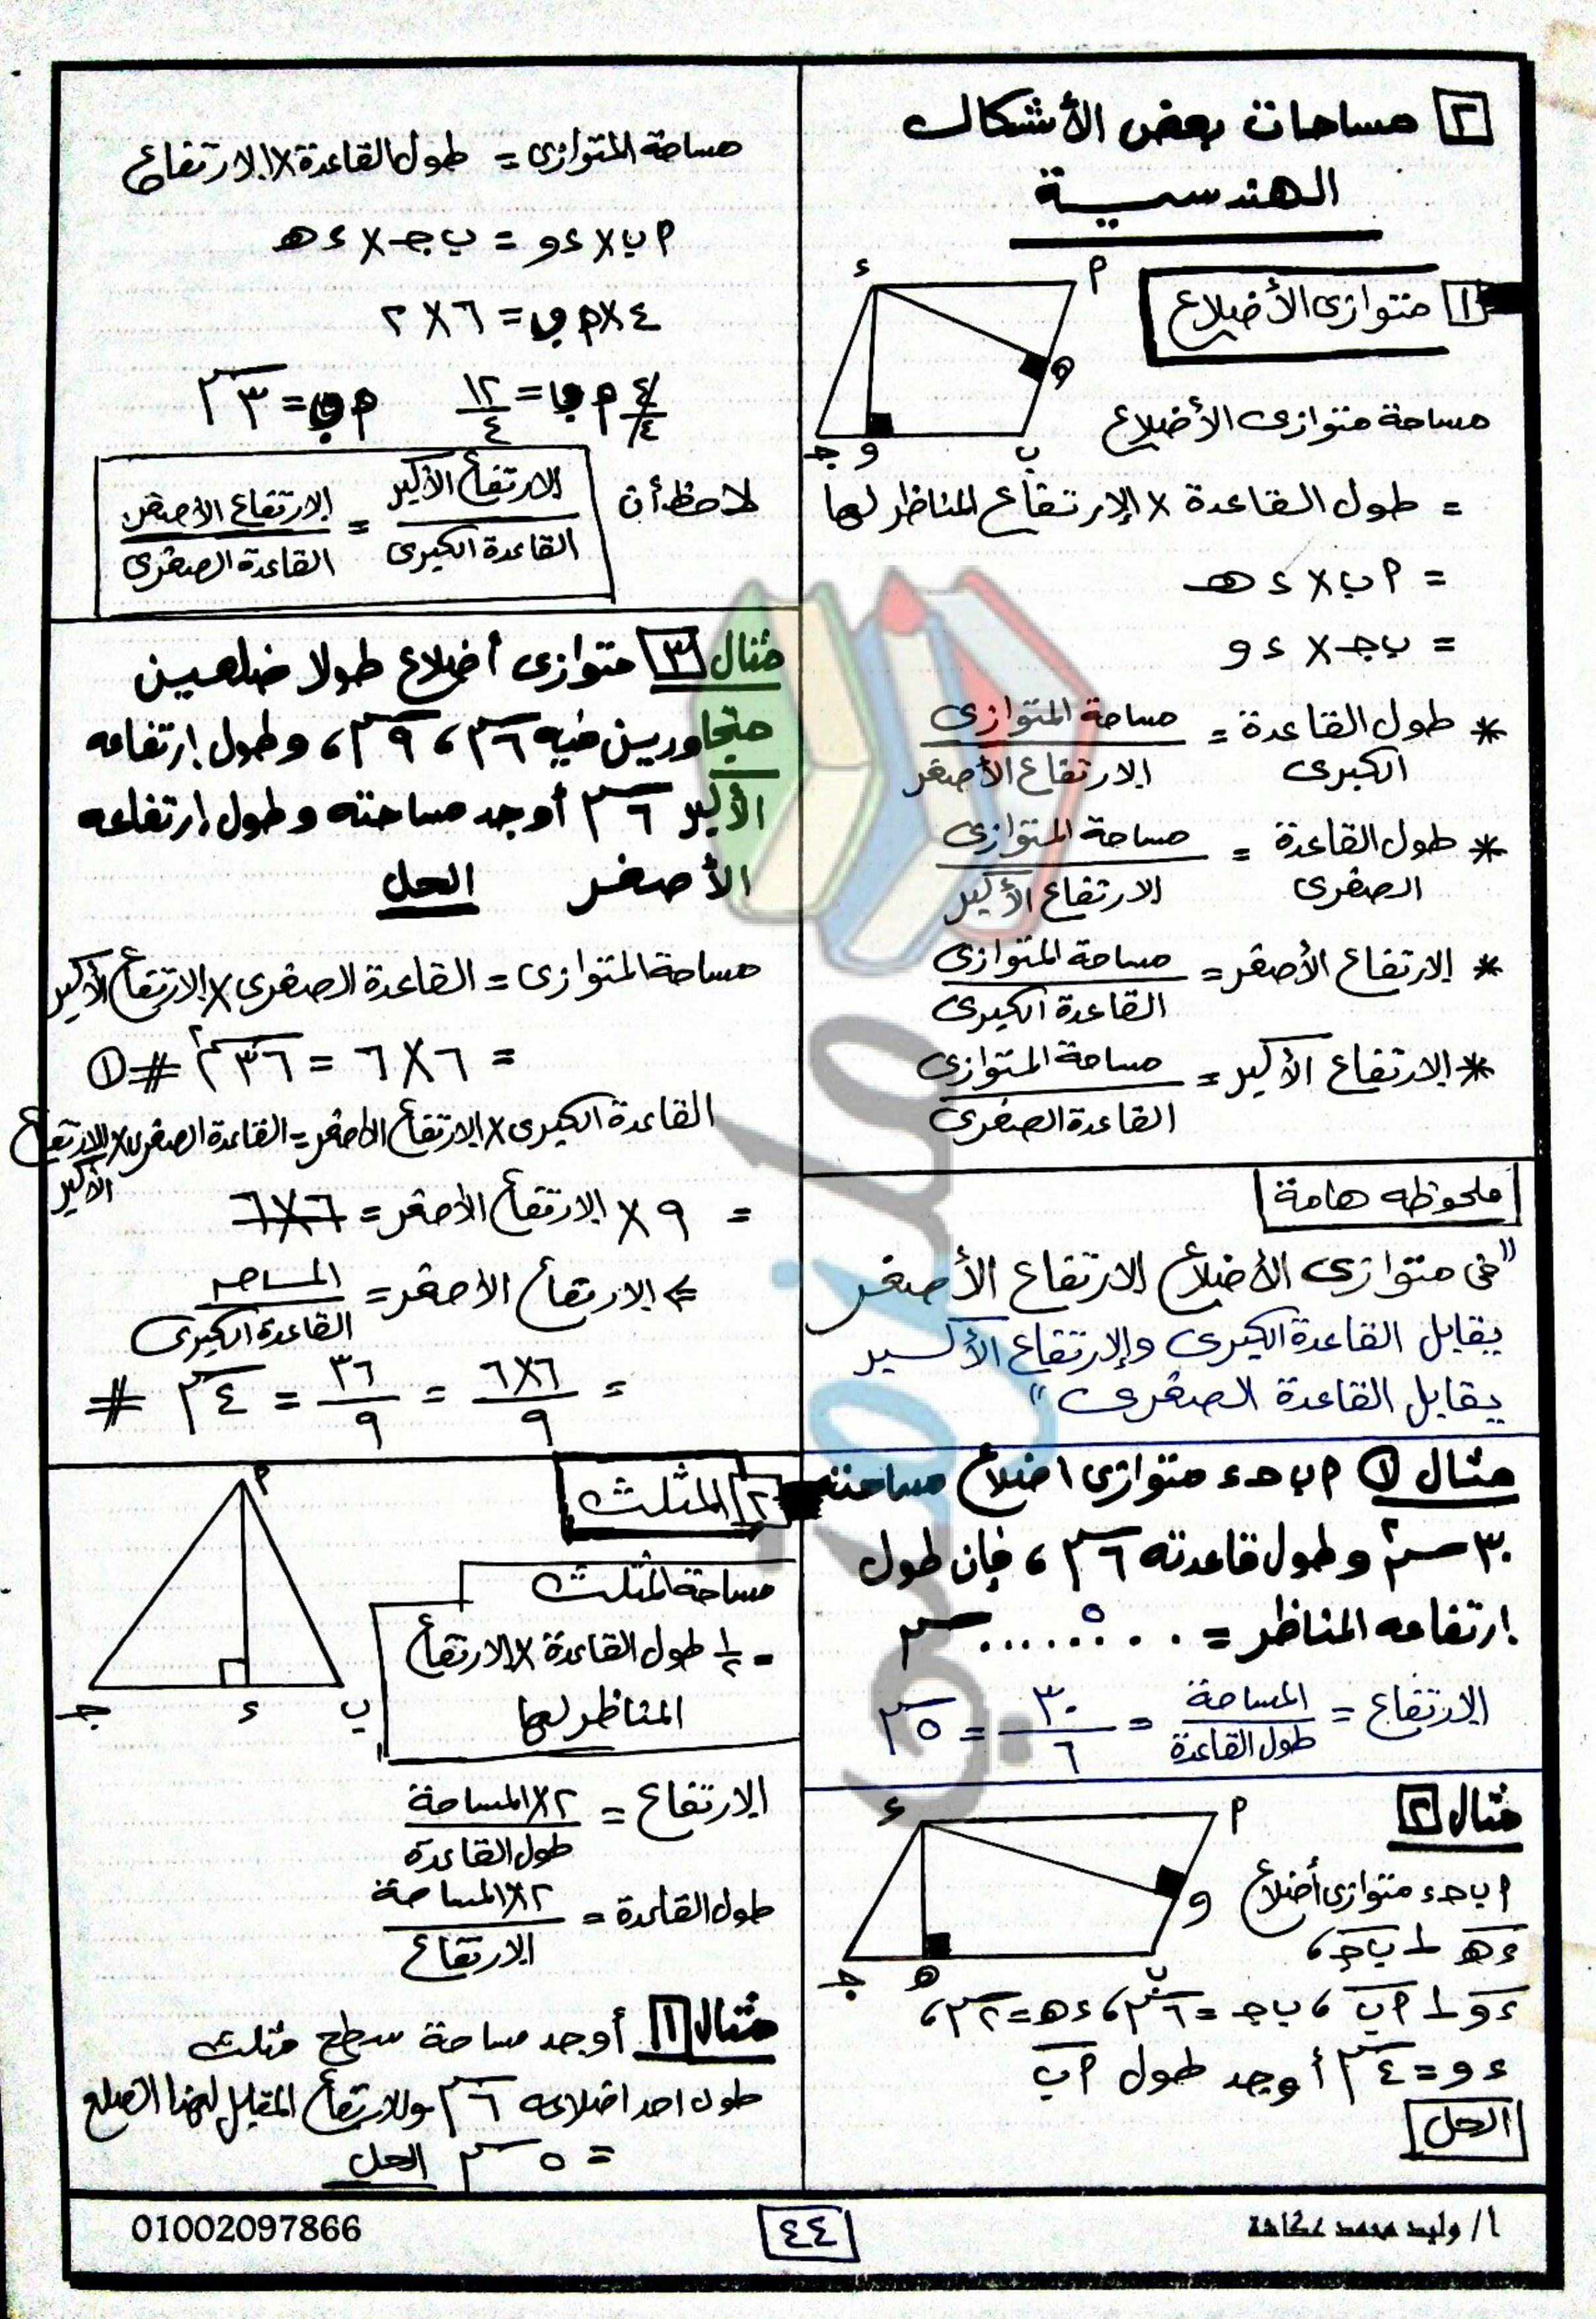 ٢ مساحات بعض الأشكال
الهندسية
١ متوازى الأضلاع
ء
P
ه
ب
و
جـ
مساحة متوازى الأضلاع
= طول القاعدة × الارتفاع المناظر لها
= P ب × ء هـ
= ب جـ × ء و
* طول القاعدة الكبرى = مساحة المتوازى / الارتفاع الأصغر
* طول القاعدة الصغرى = مساحة المتوازى / الارتفاع الأكبر
* الارتفاع الأصغر = مساحة المتوازى / القاعدة الكبرى
* الارتفاع الأكبر = مساحة المتوازى / القاعدة الصغرى
ملحوظه هامة
"فى متوازى الأضلاع الارتفاع الأصغر
يقابل القاعدة الكبرى والارتفاع الأكبر
يقابل القاعدة الصغرى"
مثال ١ P ب حـ ء متوازى اضلاع مساحته
٣٠ سم٢ وطول قاعدته ٦ سم ، فإن طول
ارتفاعه المناظر = ....٥.... سم
الارتفاع = المساحة / طول القاعدة = ٣٠ / ٦ = ٥ سم
مثال ٢
ء
P
و
ب
ه
جـ
P ب حـ ء متوازى أضلاع
ء هـ ⊥ ب جـ ،
ء و ⊥ P ب ، ب جـ = ٦ سم ، ء هـ = ٢ سم ،
ء و = ٤ سم أوجد طول P ب
الحل
مساحة المتوازى = طول القاعدة × الارتفاع
P ب × ء و = ب جـ × ء هـ
٤ × P ب = ٦ × ٢
٤/٤ P ب = ١٢/٤ P ب = ٣ سم
لاحظ أن الارتفاع الأكبر / القاعدة الكبرى = الارتفاع الأصغر / القاعدة الصغرى
مثال ٣ متوازى أضلاع طولا ضلعين
متجاورين فيه ٦ سم ، ٩ سم ، وطول إرتفاعه
الأكبر ٦ سم أوجد مساحته وطول إرتفاعه
الأصغر الحل
مساحة المتوازى = القاعدة الصغرى × الارتفاع الأكبر
= ٦ × ٦ = ٣٦ سم٢ # ①
القاعدة الكبرى × الارتفاع الأصغر = القاعدة الصغرى × الارتفاع الأكبر
= ٩ × الارتفاع الأصغر = ٦ × ٦
⇐ الارتفاع الأصغر = المساحه / القاعدة الكبرى
= ٦×٦ / ٩ = ٣٦ / ٩ = ٤ سم #
٢ المثلث
P
ب
ء
جـ
مساحة المثلث
= ١/٢ طول القاعدة × الارتفاع
المناظر لها
الارتفاع = ٢ × المساحة / طول القاعدة
طول القاعدة = ٢ × المساحة / الارتفاع
مثال ١ أوجد مساحة سطح مثلث
طول احد اضلاعه ٦ سم والارتفاع المقابل لهذا الضلع
= ٥ سم الحل
أ/ وليد محمد عكاشة
٤٤
01002097866